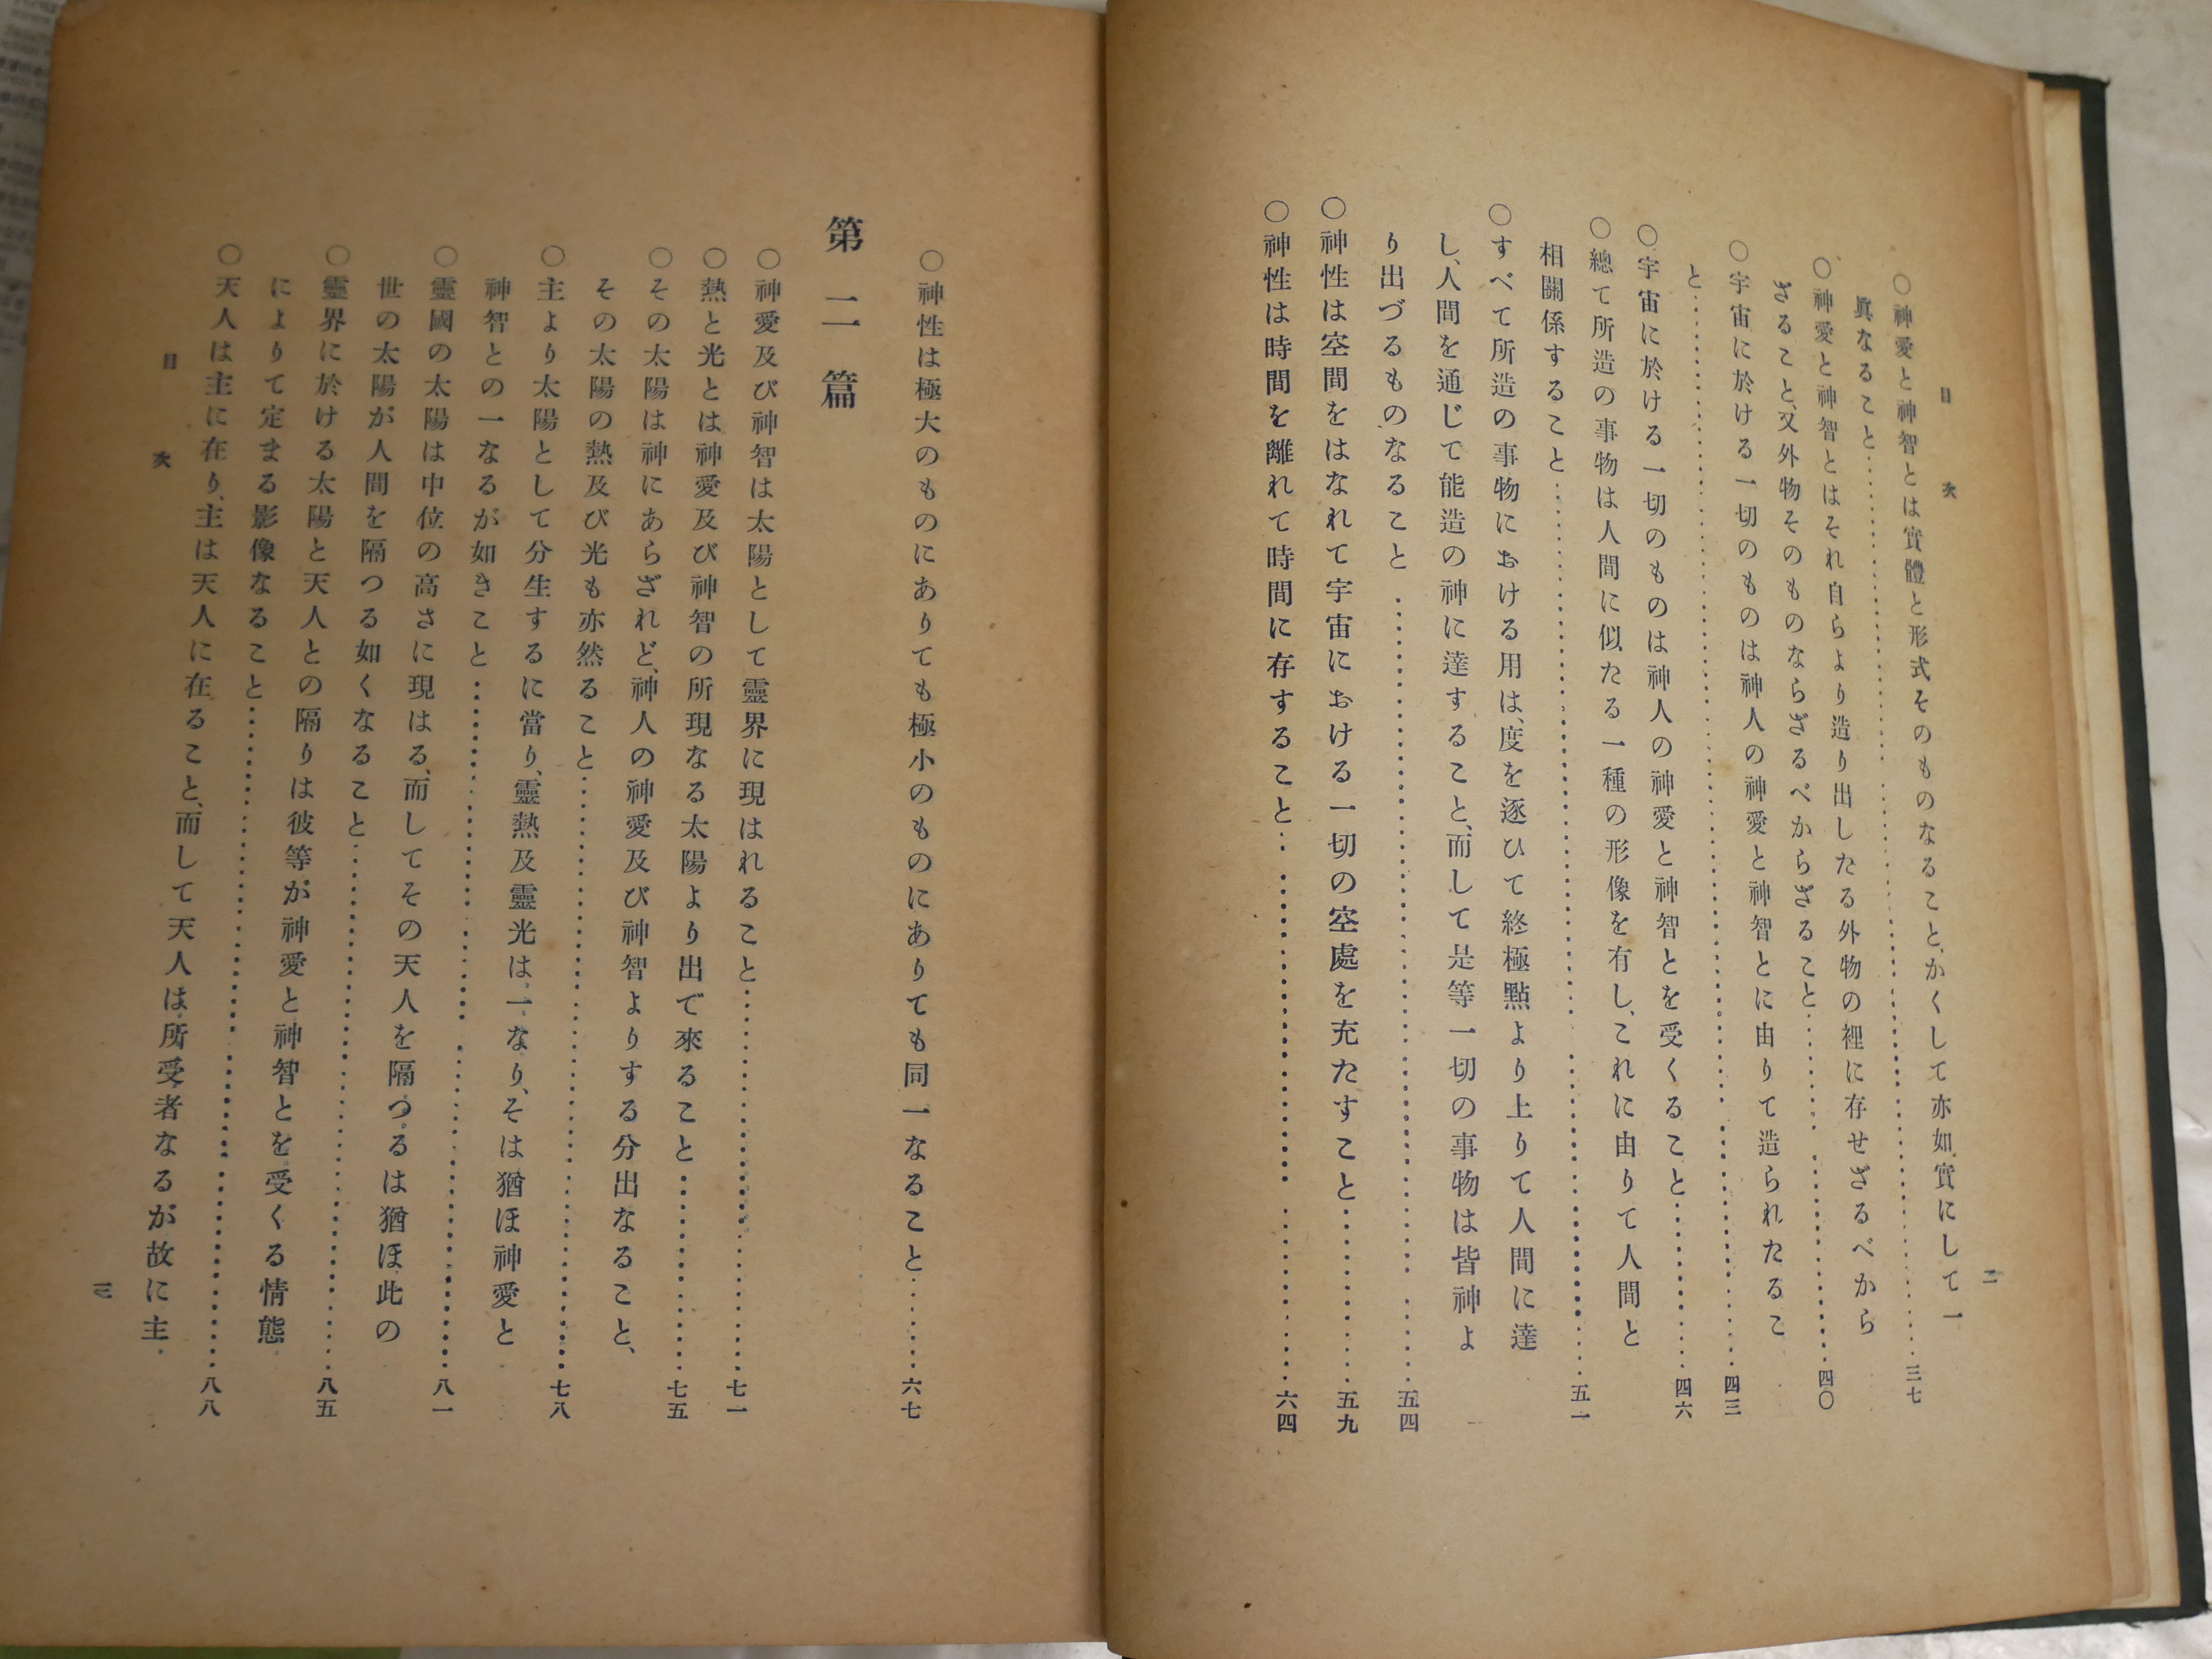 目次
二
○神愛と神智とは實體と形式そのものなること、かくして亦如實にして一
眞なること……三七
○神愛と神智とはそれ自らより造り出したる外物の裡に存せざるべから
ざること、又外物そのものならざるべからざること……四〇
○宇宙に於ける一切のものは神人の神愛と神智とに由りて造られたるこ
と……四三
○宇宙に於ける一切のものは神人の神愛と神智とを受くること……四六
○總て所造の事物は人間に似たる一種の形像を有し、これに由りて人間と
相關係すること……五一
○すべて所造の事物における用は、度を逐ひて終極點より上りて人間に達
し、人間を通じて能造の神に達すること、而して是等一切の事物は皆神よ
り出づるものなること……五四
○神性は空間をはなれて宇宙における一切の空處を充たすこと……五九
○神性は時間を離れて時間に存すること……六四
○神性は極大のものにありても極小のものにありても同一なること……六七
第二篇
○神愛及び神智は太陽として靈界に現はれること……七一
○熱と光とは神愛及び神智の所現なる太陽より出で來ること……七五
○その太陽は神にあらざれど、神人の神愛及び神智よりする分出なること、
その太陽の熱及び光も亦然ること……七八
○主より太陽として分生するに當り、靈熱及靈光は、一なり、そは猶ほ神愛と
神智との一なるが如きこと……八一
○靈國の太陽は中位の高さに現はる、而してその天人を隔つるは猶ほ此の
世の太陽が人間を隔つる如くなること……八五
○靈界に於ける太陽と天人との隔りは彼等が神愛と神智とを受くる情態
によりて定まる影像なること……八八
○天人は主に在り、主は天人に在ること、而して天人は所受者なるが故に主
目次
三